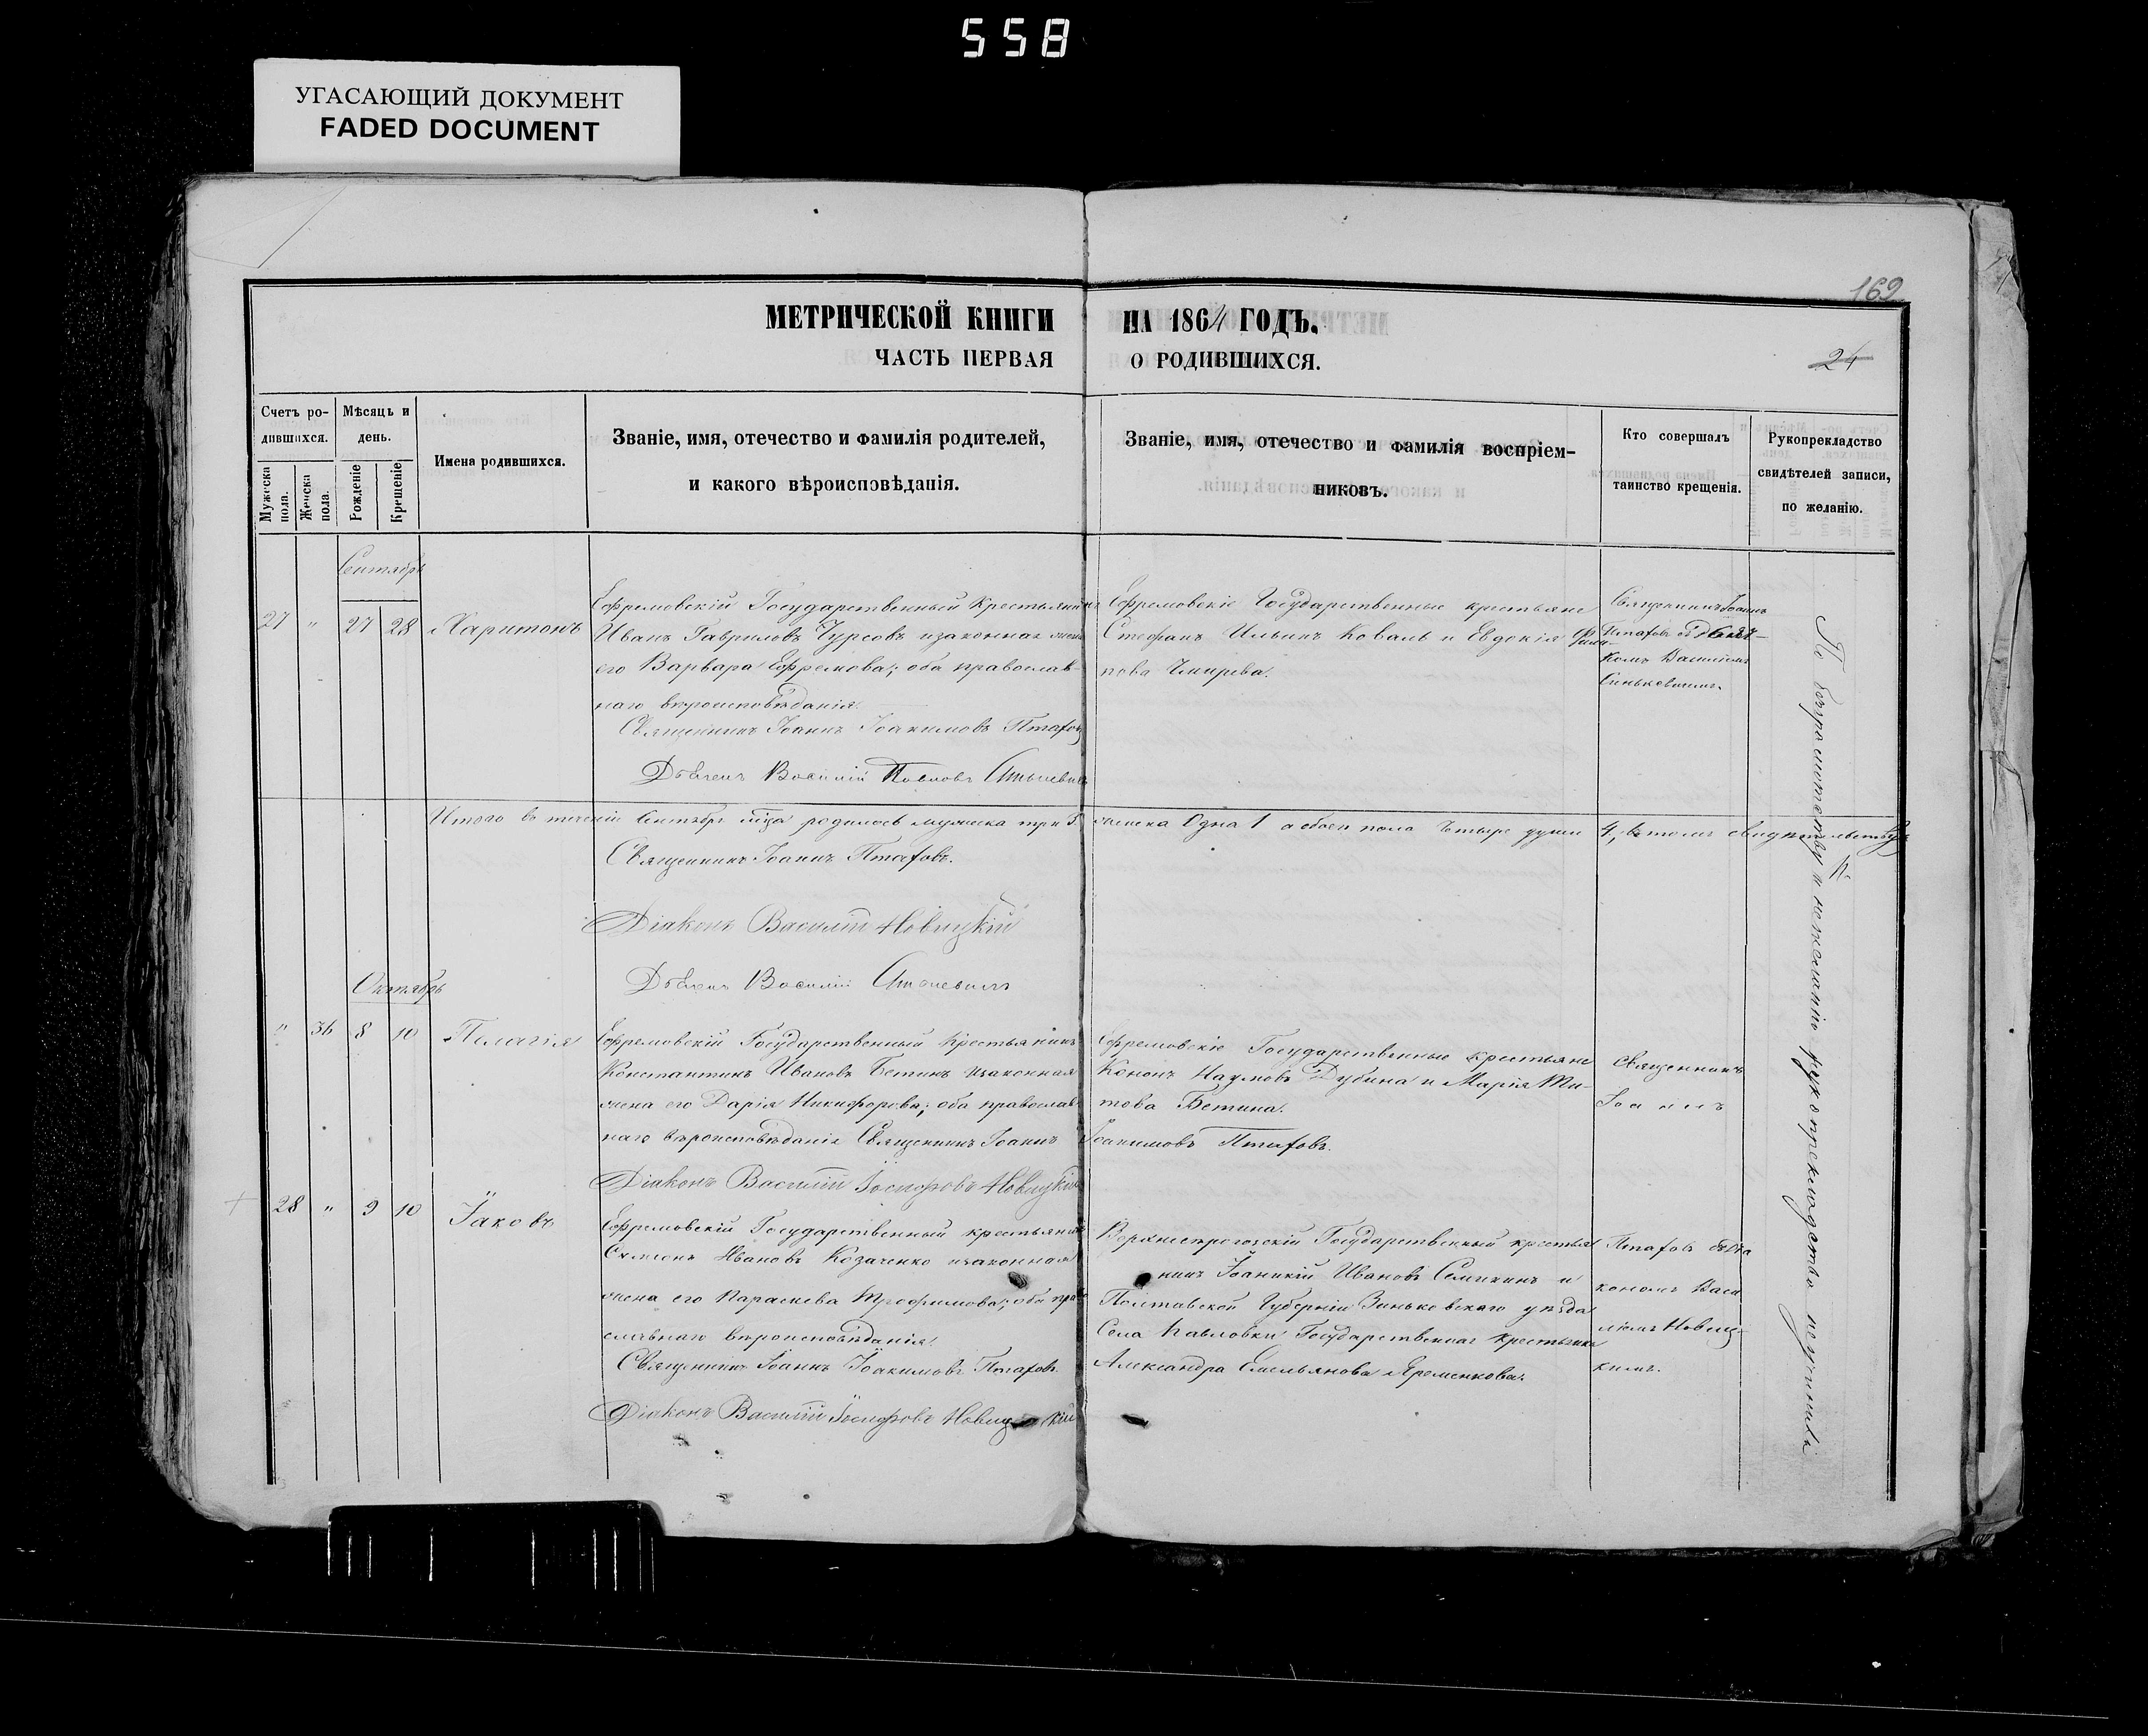 558
УГАСАЮЩИЙ ДОКУМЕНТ
FADED DOCUMENT
169
МЕТРИЧЕСКОЙ КНИГИ НА 1864 ГОДЪ,
ЧАСТЬ ПЕРВАЯ О РОДИВШИХСЯ.
24
Счетъ ро-
дившихся.
Мужеска
пола.
Женска
пола.
Мѣсяць и
день.
Рожденіе
Крещеніе
Имена родившихся.
Званіе, имя, отечество и фамилія родителей,
и какого вѣроисповѣданія.
Званіе, имя, отечество и фамилія воспріем-
никовъ.
Кто совершалъ
таинство крещенія.
Рукоприкладство
свидѣтелей записи,
по желанію.
Сентябрь
27 " 27 28 Харитонъ
Ефремовскій Государственный Крестьянинъ
Иванъ Гавриловъ Чурсовъ изаконная жена
его Варвара Ефремова; оба православ-
наго вѣроисповѣданія.
Священникъ Іоаннъ Іоакимовъ Птаховъ
Дьячекъ Василій Павловъ
Ефремовскіе Государственные крестьяне
Стефанъ Ильинъ Коваль и Евдокія Фили-
пова
Священникъ Іоаннъ
Птаховъ съ Дьяч-
комъ Василіемъ
Синькевичемъ.
Итого въ теченіи Сентябрь мѣца родилось мужеска три 3. женска Одна 1 а обоего пола Четыре души 4, въ томъ свидѣтельствуемъ
Священникъ Іоаннъ Птаховъ.
Діаконъ Василій Новицкій
Дьячекъ Василій
Октябрь
" 36 8 10 Пелагія
Ефремовскій Государственный Крестьянинъ
Константинъ Ивановъ Бетинъ изаконная
жена его Дарія Никифорова; оба православ-
наго вѣроисповѣданія Священникъ Іоаннъ Іоакимовъ Птаховъ.
Діаконъ Василій Іосифовъ Новицкій
Ефремовскіе Государственные крестьяне
Кононъ Наумовъ Дубина и Марія Ти-
това Бетина.
Священникъ
Іоаннъ
28 " 9 10 Іаковъ
Ефремовскій Государственный крестьянинъ
Симеонъ Ивановъ Козаченко изаконная
жена его Параскева Трофимова; оба пра-
славнаго вѣроисповѣданія.
Священникъ Іоаннъ Іоакимовъ Птаховъ.
Діаконъ Василій Іосифовъ Новицкій
Верхнесерогозскій Государственный крестья
нинъ Іоаникій Ивановъ Семихинъ и
Полтавской Губерніи Зиньковскаго уѣзда
Села Павловки Государственная крестьянка
Александра Емельянова Яременкова.
Птаховъ съ Діа
кономъ Васи
ліемъ Новиц-
кимъ.
По безграмотству и нежеланію рукоприкладства неучинили